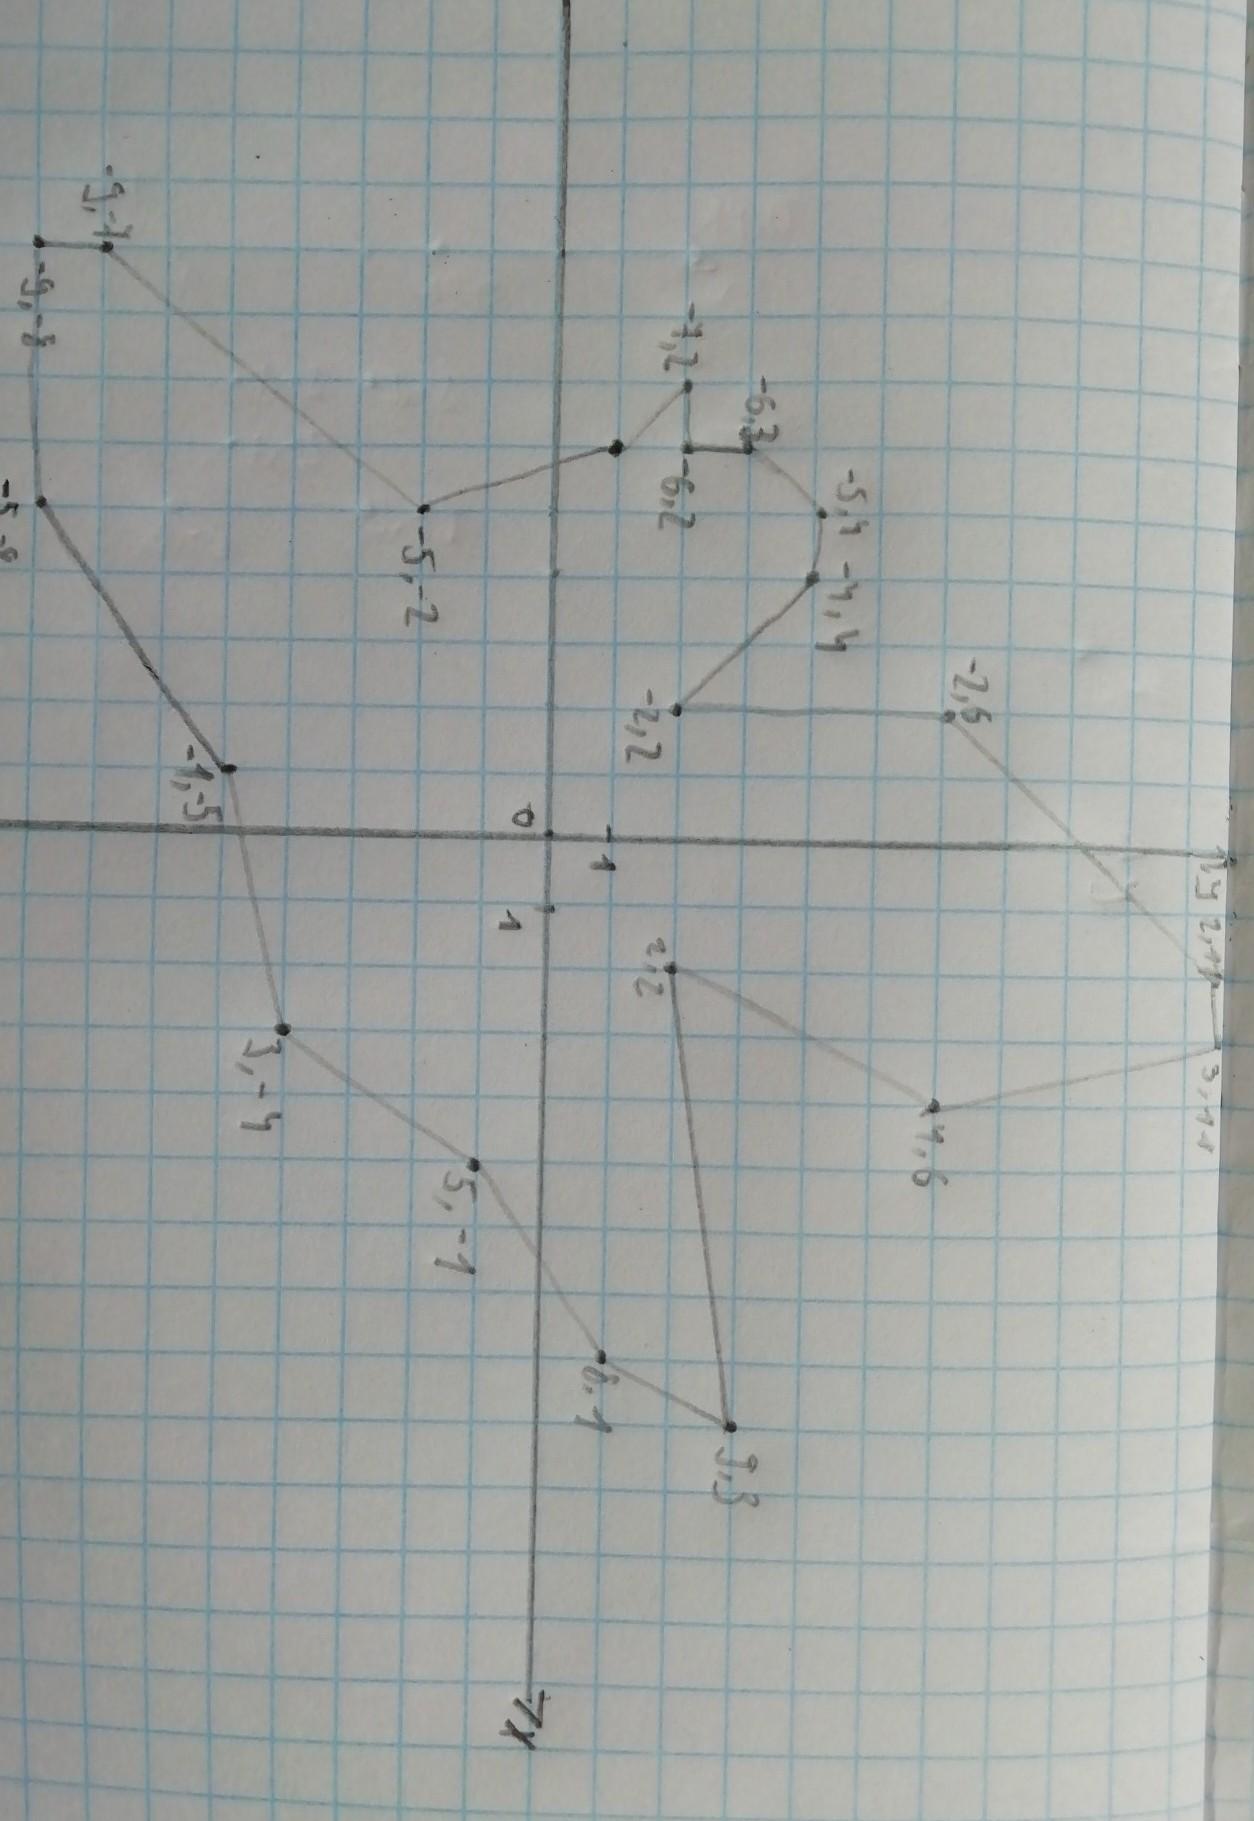 y
2,11
3,11
-2,6
4,6
-5,4
-4,4
-6,3
9,3
-7,2
-6,2
-2,2
2,2
1
6,1
0
1
x
5,-1
-5,-2
3,-4
-1,-5
-9,-7
-9,-8